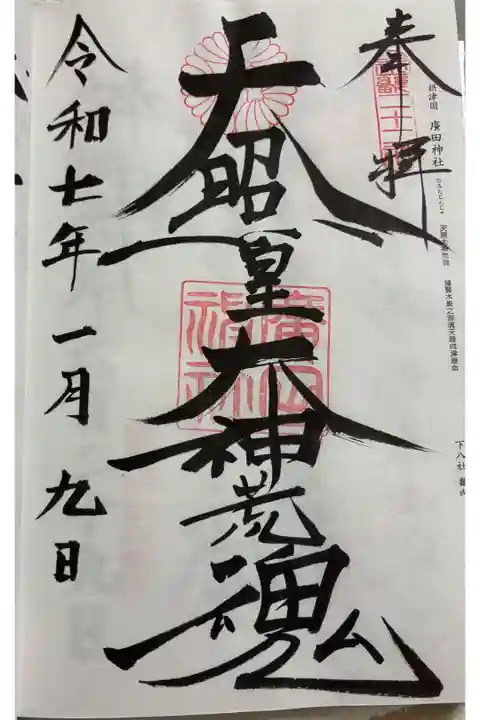 奉拝
摂津國 廣田神社
ひろたじんじゃ
撞賢木厳之御魂天疎向津媛命
下八社
天照皇大神荒魂
廣田神社
令和七年一月九日